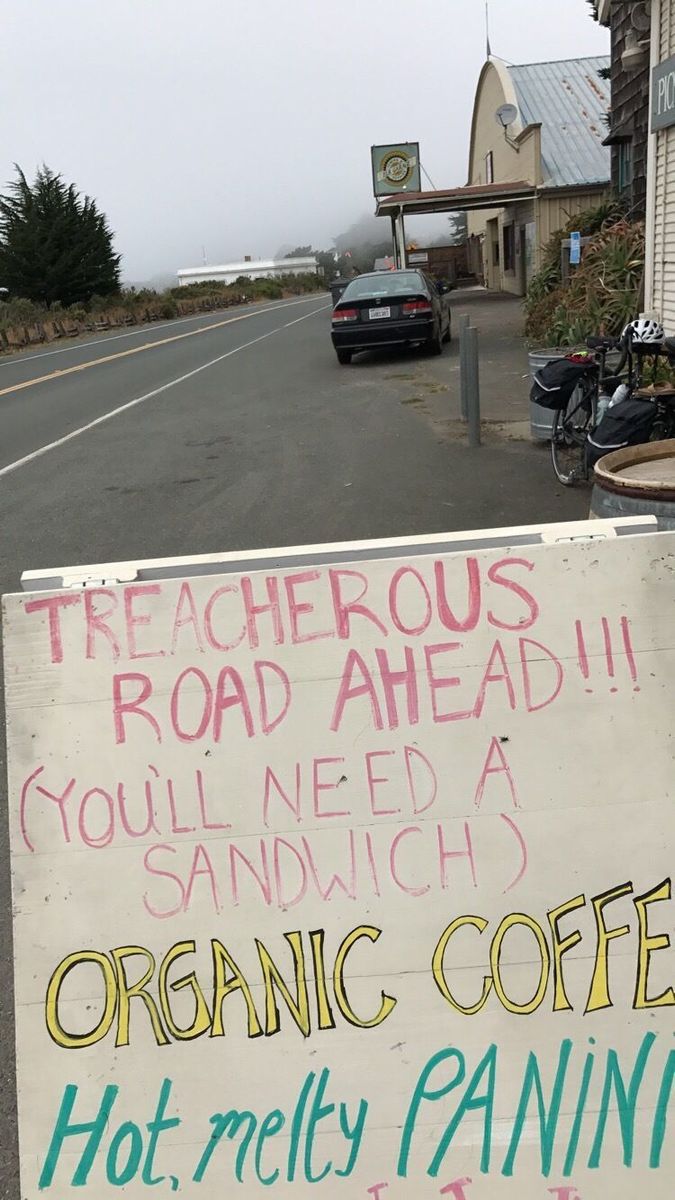 TREACHEROUS
ROAD AHEAD!!!
(YOU'LL NEED A
SANDWICH)
ORGANIC COFFEE
Hot, melty PANINI